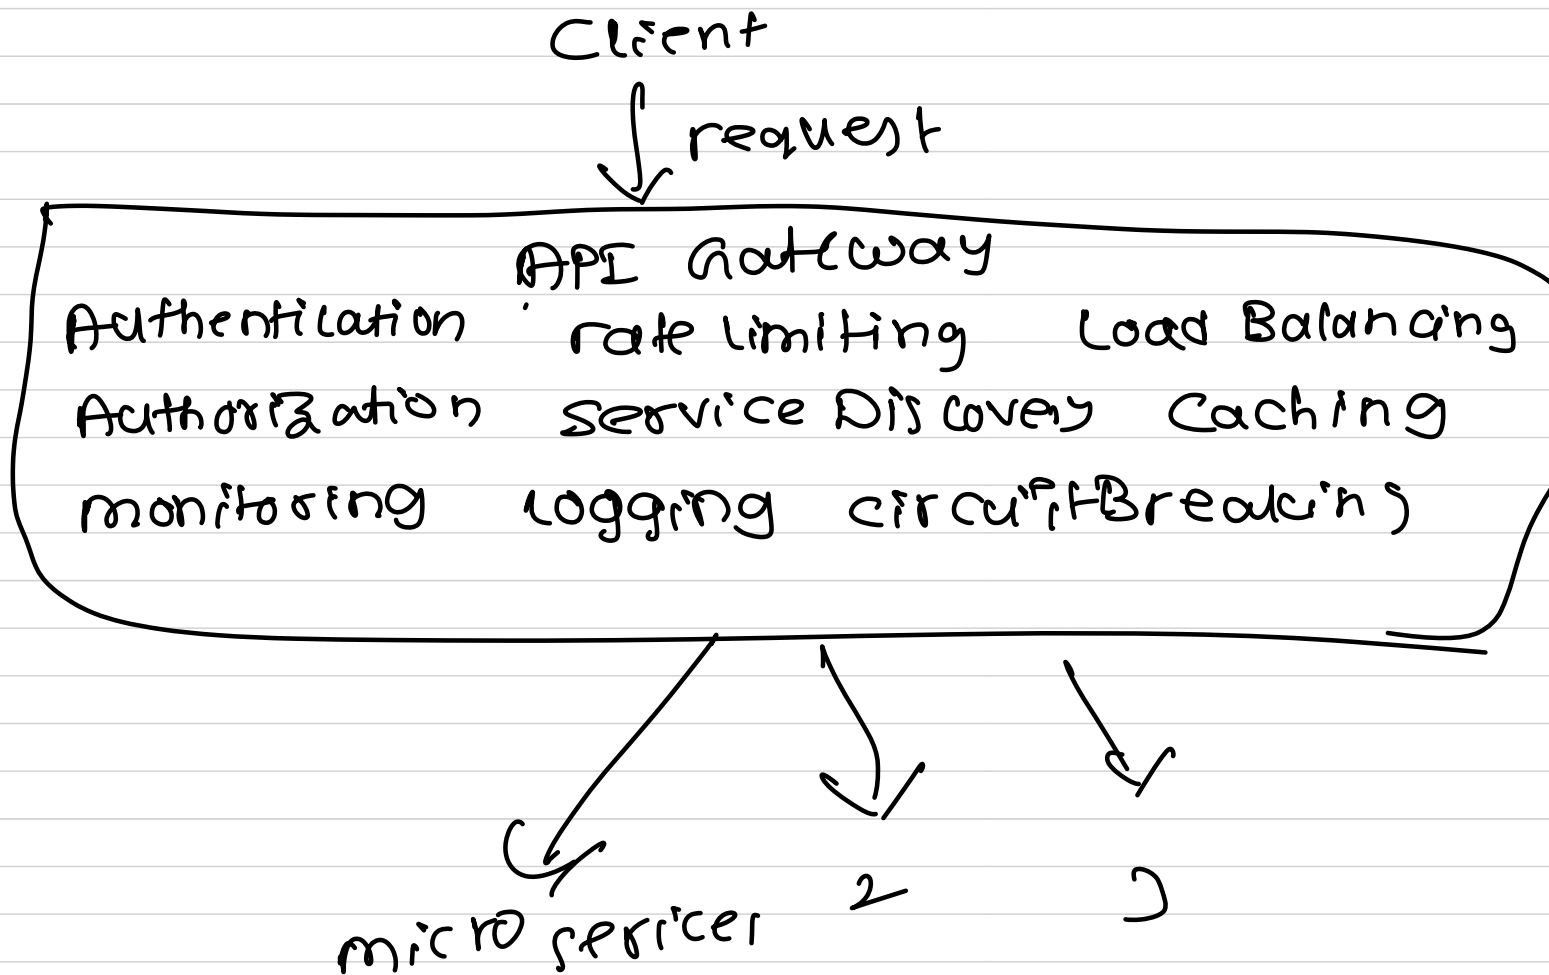 Client
request
API Gateway
Authentication rate limiting Load Balancing
Authorization service Discovery Caching
monitoring logging circuit Breaking
2 3
micro services 1